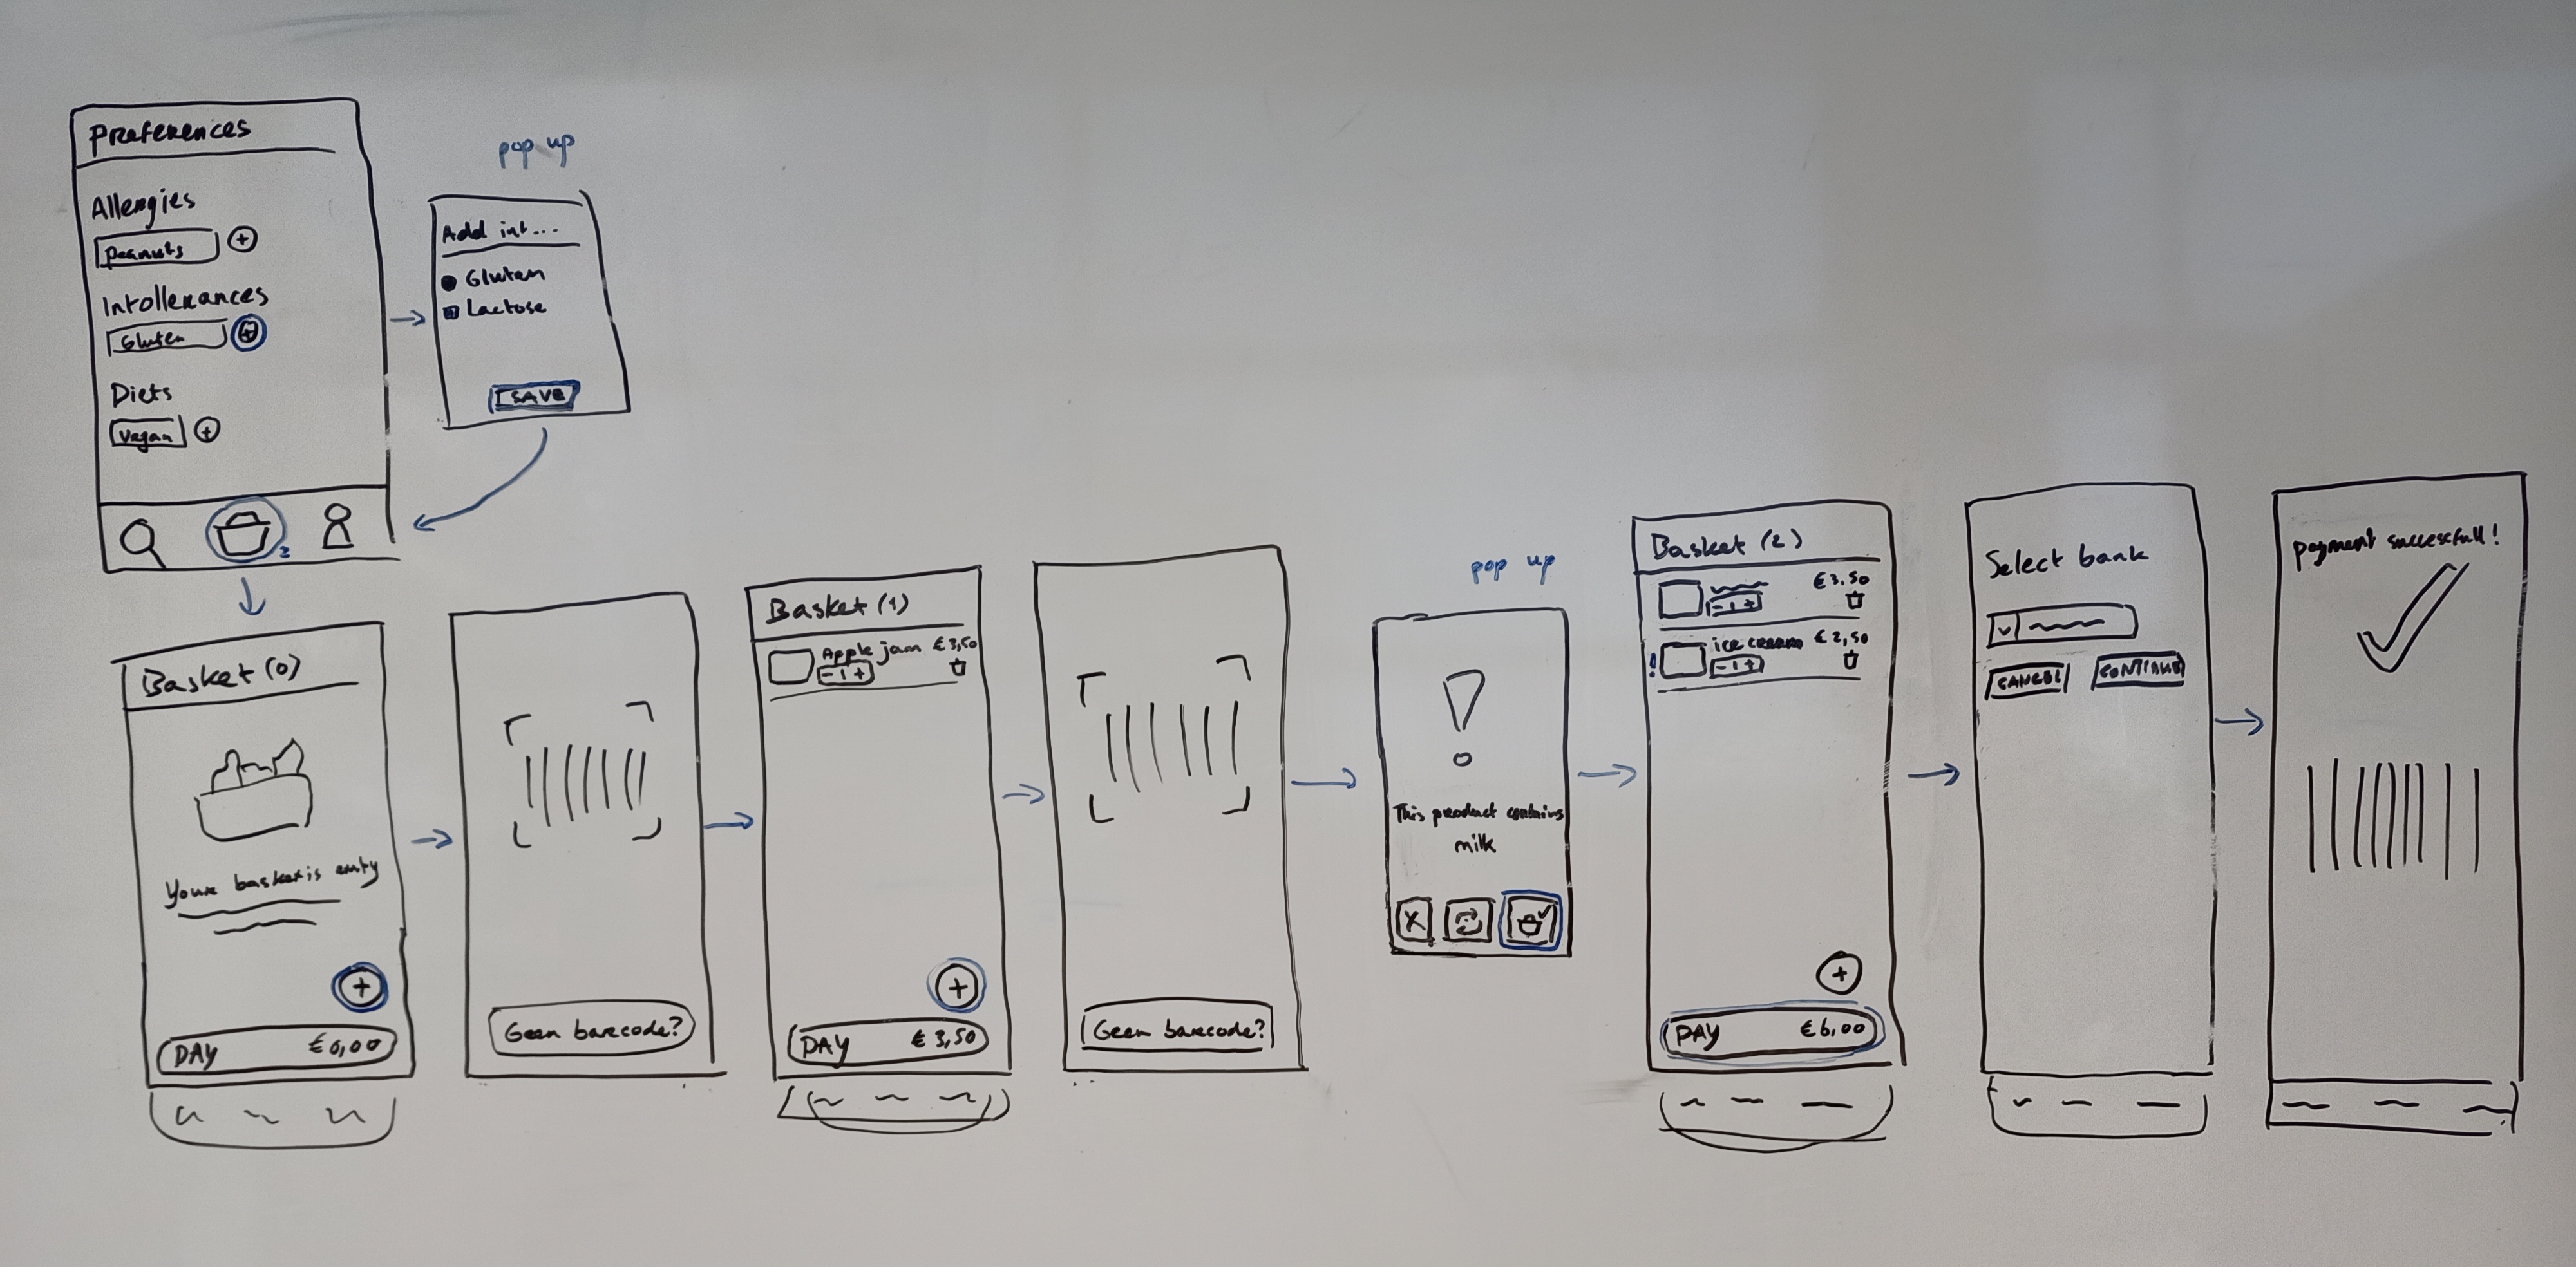 Preferences
Allergies
Peanuts +
Intollerances
Gluten +
Diets
Vegan +
2
pop up
Add int...
Gluten
Lactose
SAVE
Basket (0)
Your basket is emty
+
PAY €0,00
Geen barcode?
Basket (1)
Apple jam €3,50
- 1 +
+
PAY €3,50
Geen barcode?
pop up
!
This product contains
milk
X
Basket (2)
€3.50
- 1 +
! ice cream €2,50
- 1 +
+
PAY €6,00
Select bank
CANCEL CONTINUE
payment successfull!